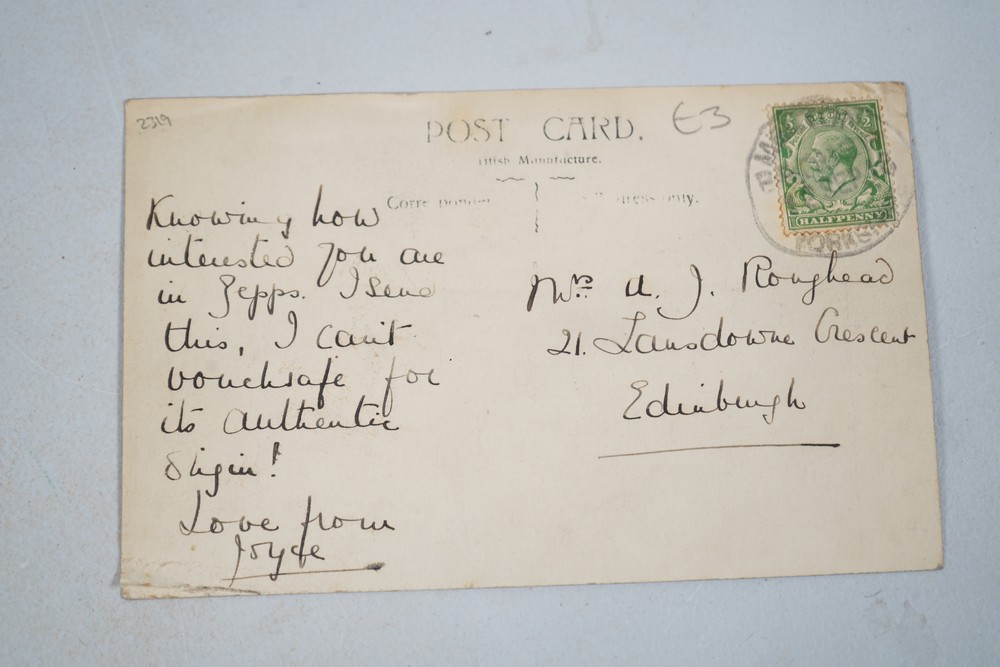 2319
POST CARD.
E3
Manufacture.
HALFPENNY
YORKS.
Knowing how
interested you are
in Zepps. I send
this, I can't
vouchsafe for
its authentic
Origin!
Love from
Joyce
Mrs A. J. Roughead
21. Lansdowne Crescent
Edinburgh